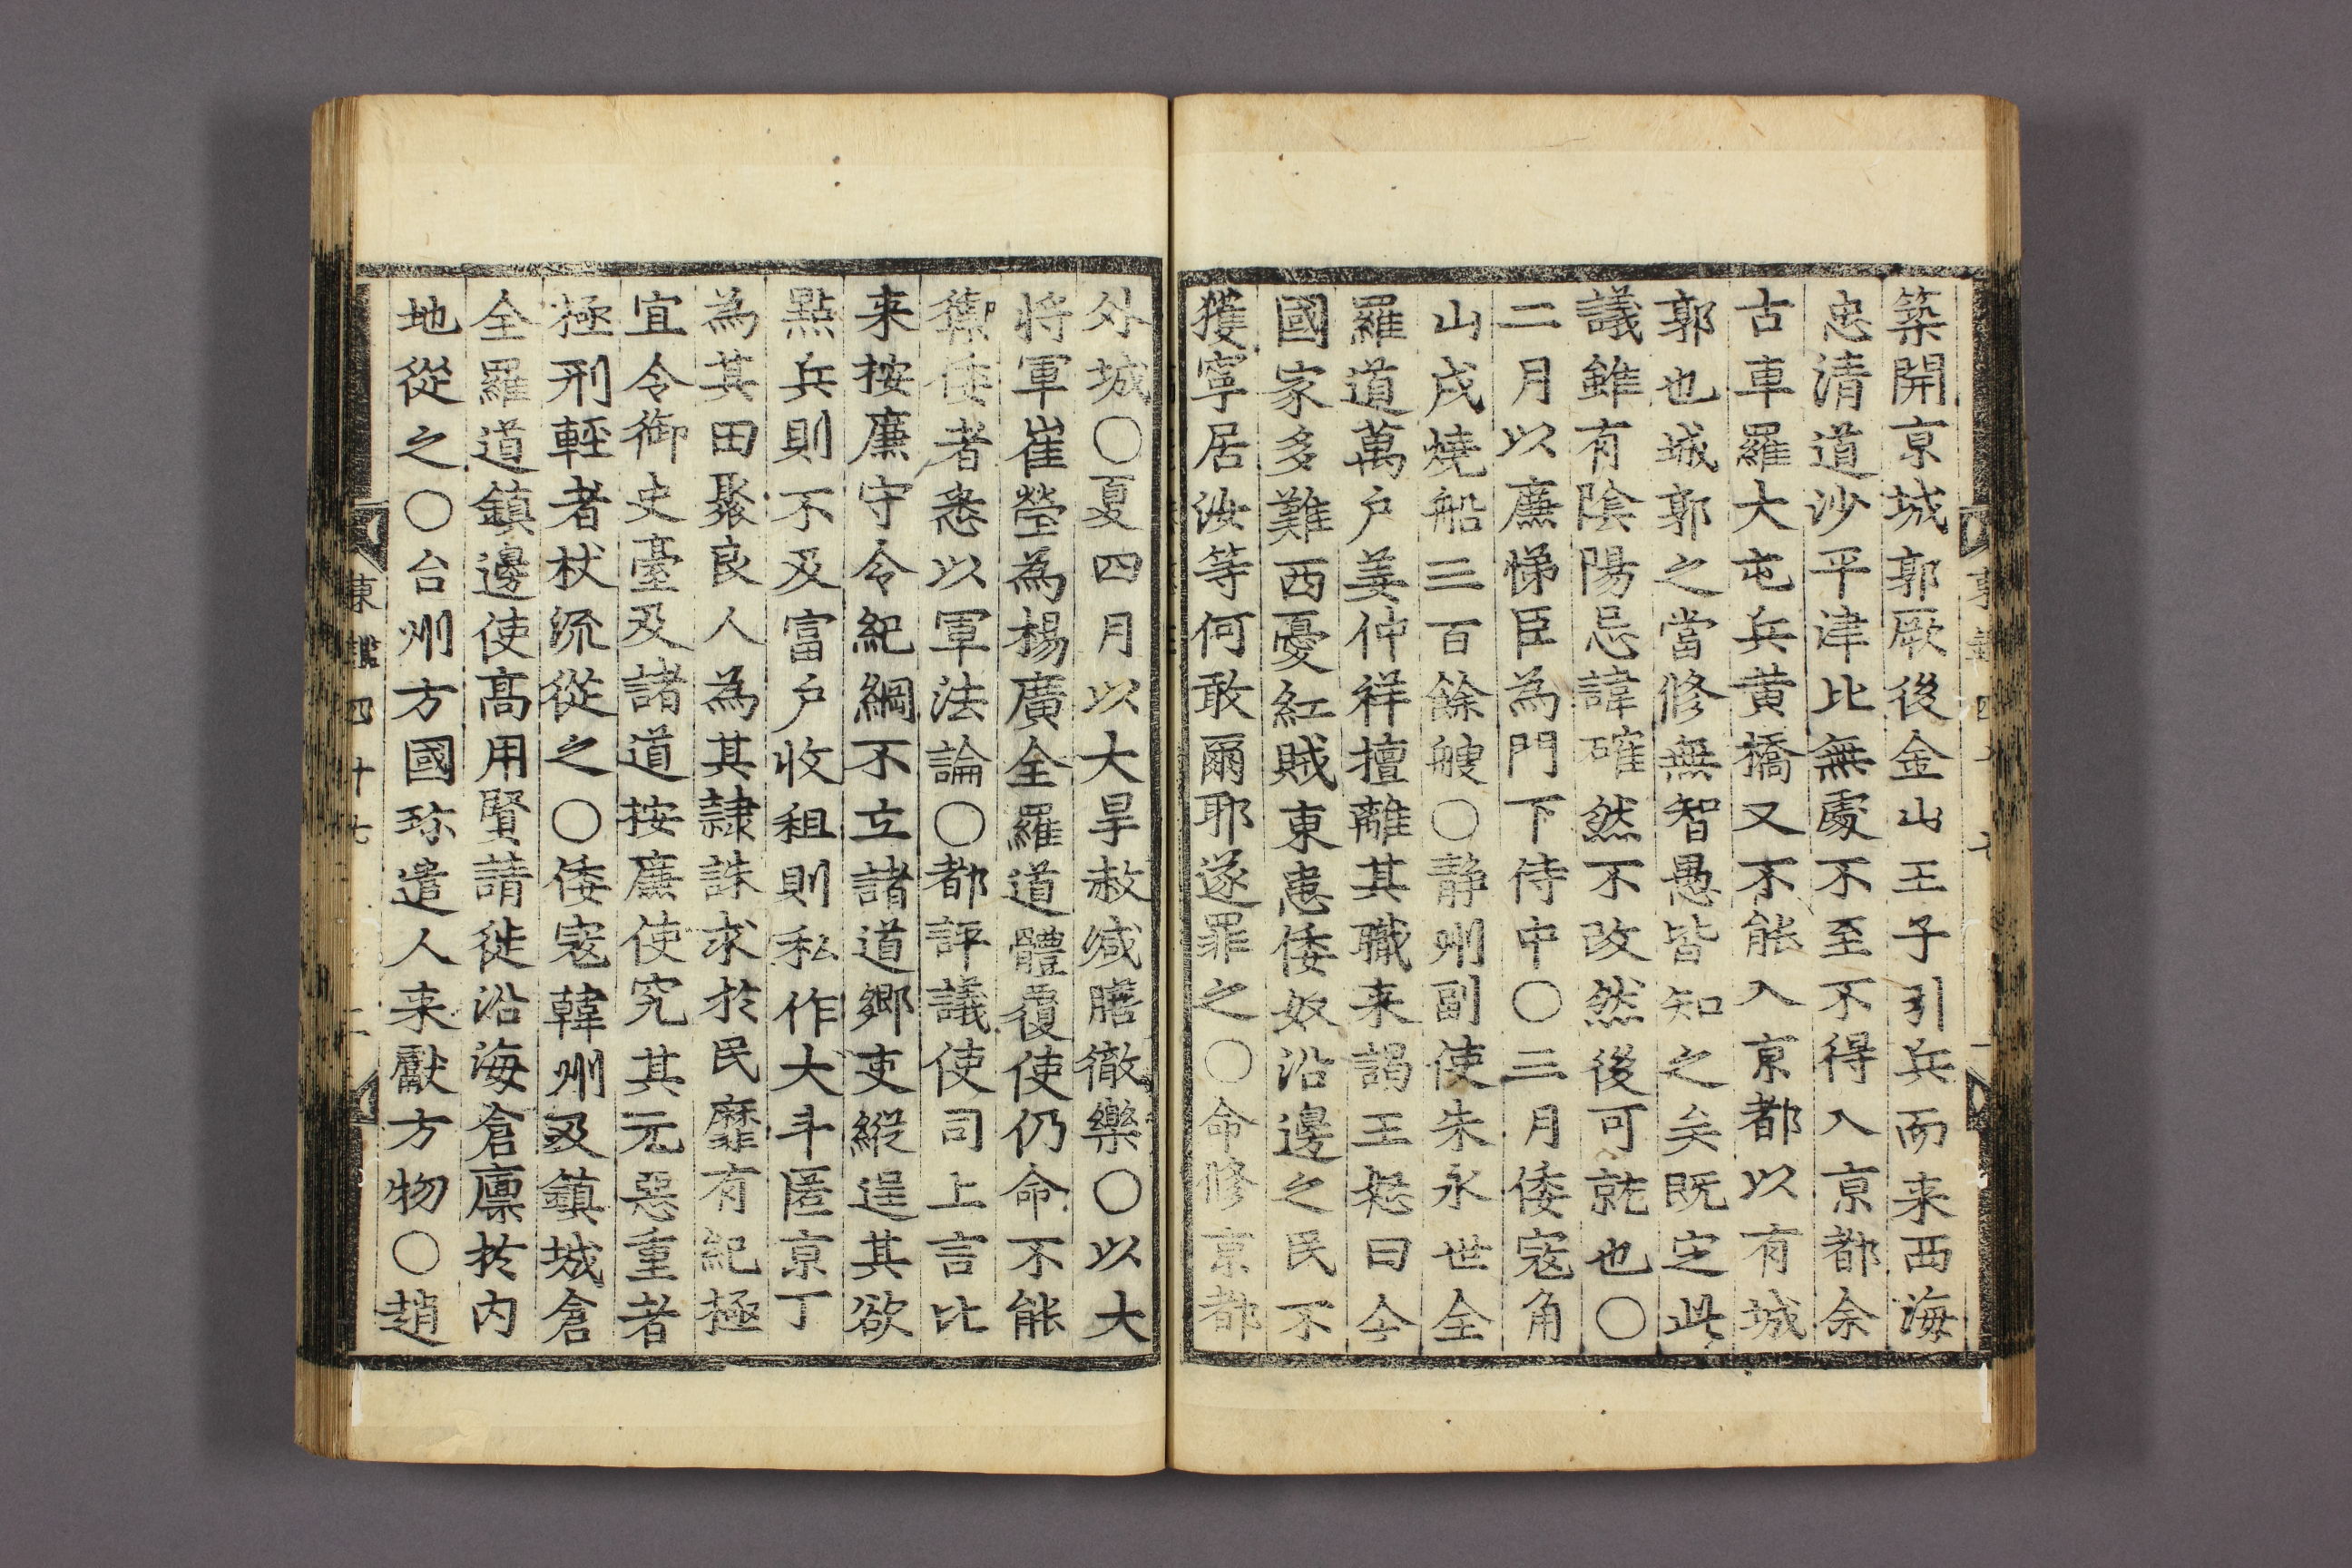 築開京城郭厥後金山王子引兵而来西海
忠清道沙平津比無處不至不得入京都余
古車羅大屯兵黄橋又不能入京都以有城
郭也城郭之當修無智愚皆知之矣既定此
議雖有陰陽忌諱確然不改然後可就也〇
二月以廉悌臣為門下侍中〇三月倭寇角
山戍燒船三百餘艘〇靜州副使朱永世全
羅道萬户姜仲祥擅離其職来謁王怒曰今
國家多難西憂紅賊東患倭奴沿邊之民不
獲寧居汝等何敢爾耶遂罪之〇命修京都
外城〇夏四月以大旱赦减膳徹樂〇以大
將軍崔瑩為楊廣全羅道體覆使仍命不能
禦倭者悉以軍法論〇都評議使司上言比
来按廉守令紀綱不立諸道鄉吏縱逞其欲
點兵則不及富户收租則私作大斗匿京丁
為其田聚良人為其隷誅求於民靡有紀極
宜令御史臺及諸道按廉使究其元惡重者
極刑輕者杖流從之〇倭寇韓州及鎮城倉
全羅道鎮邊使髙用賢請徙沿海倉廩於内
地從之〇台州方國珍遣人来獻方物〇趙
東鑑四十七
二